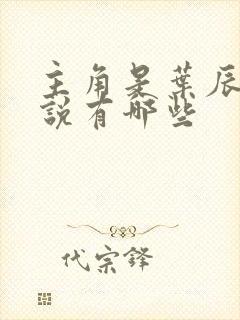 主角是葉辰
說有哪些
代宗鋒